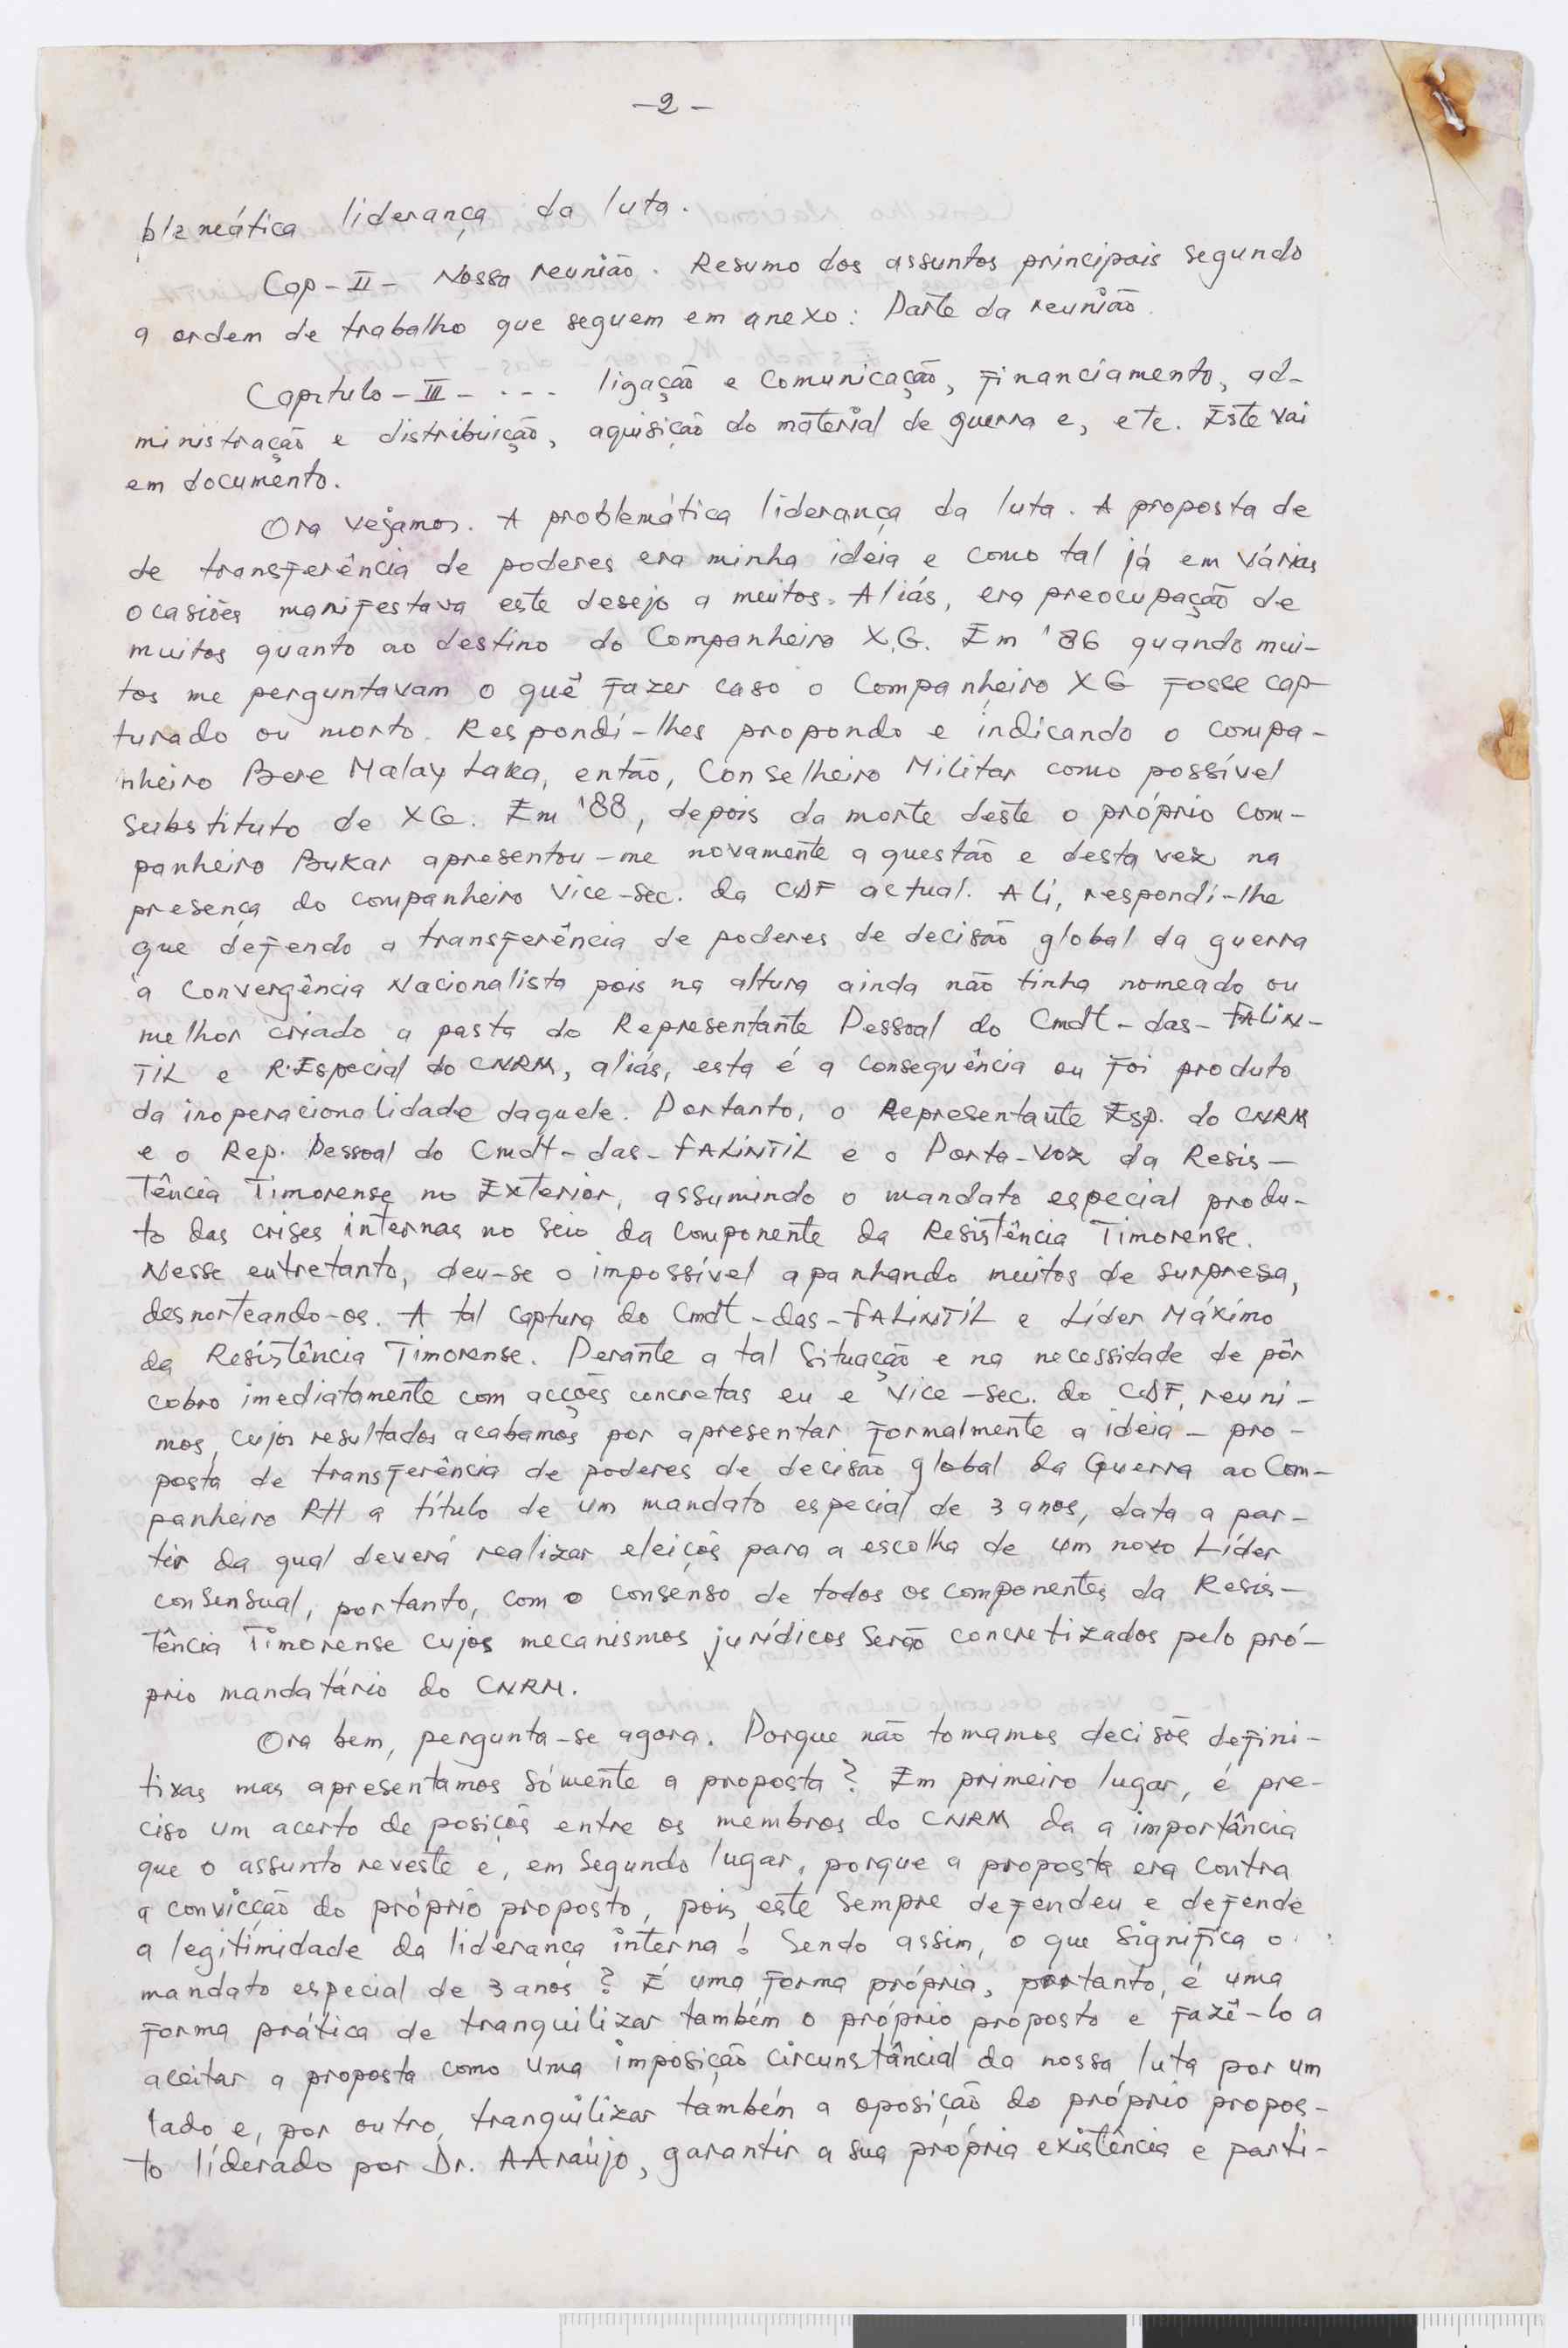 -2-
blemática liderança da luta.
Cap-II- Nossa reunião. Resumo dos assuntos principais segundo
a ordem de trabalho que seguem em anexo: Parte da reunião.
Capítulo-III- ... ligação e comunicação, financiamento, ad-
ministração e distribuição, aquisição do material de guerra e, etc. Este vai
em documento.
Ora vejamos. A problemática liderança da luta. A proposta de
de transferência de poderes era minha ideia e como tal já em várias
ocasiões manifestava este desejo a muitos. Aliás, era preocupação de
muitos quanto ao destino do Companheiro X.G. Em '86 quando mui-
tos me perguntavam o quê fazer caso o Companheiro XG fosse cap-
turado ou morto. Respondí-lhes propondo e indicando o compa-
nheiro Bere Malay Laka, então, Conselheiro Militar como possível
substituto de XG. Em '88, depois da morte deste o próprio com-
panheiro Bukar apresentou-me novamente a questão e desta vez na
presença do companheiro Vice-Sec. da CDF actual. Alí, respondí-lhe
que defendo a transferência de poderes de decisão global da guerra
à Convergência Nacionalista pois na altura ainda não tinha nomeado ou
melhor criado a pasta do Representante Pessoal do Cmdt-das-FALIN-
TIL e R.Especial do CNRM, aliás, esta é a consequência ou foi produto
da inoperacionalidade daquele. Portanto, o Representante Esp. do CNRM
e o Rep. Pessoal do Cmdt-das-FALINTIL e o Porta-Voz da Resis-
tência Timorense no Exterior, assumindo o mandato especial produ-
to das crises internas no seio da componente da Resistência Timorense.
Nesse entretanto, deu-se o impossível apanhando muitos de surpresa,
desnorteando-os. A tal captura do Cmdt-das-FALINTIL e Líder Máximo
da Resistência Timorense. Perante a tal situação e na necessidade de pôr
cobro imediatamente com acções concretas eu e Vice-sec. do CDF, reuni-
mos, cujos resultados acabamos por apresentar formalmente a ideia-pro-
posta de transferência de poderes de decisão global da Guerra ao Com-
panheiro RH a título de um mandato especial de 3 anos, data a par-
tir da qual deverá realizar eleições para a escolha de um novo Líder
consensual, portanto, com o consenso de todos os componentes da Resis-
tência Timorense cujos mecanismos jurídicos serão concretizados pelo pró-
prio mandatário do CNRM.
Ora bem, pergunta-se agora. Porque não tomamos decisões defini-
tivas mas apresentamos sómente a proposta? Em primeiro lugar, é pre-
ciso um acerto de posições entre os membros do CNRM da a importância
que o assunto reveste e, em segundo lugar, porque a proposta era contra
a convicção do próprio proposto, pois este sempre defendeu e defende
a legitimidade da liderança interna! Sendo assim, o que significa o
mandato especial de 3 anos? É uma forma própria, portanto, é uma
forma prática de tranquilizar também o próprio proposto e fazê-lo a
aceitar a proposta como uma imposição circunstâncial da nossa luta por um
lado e, por outro, tranquilizar também a oposição do próprio propos-
to líderado por Dr. AAraújo, garantir a sua própria existência e parti-